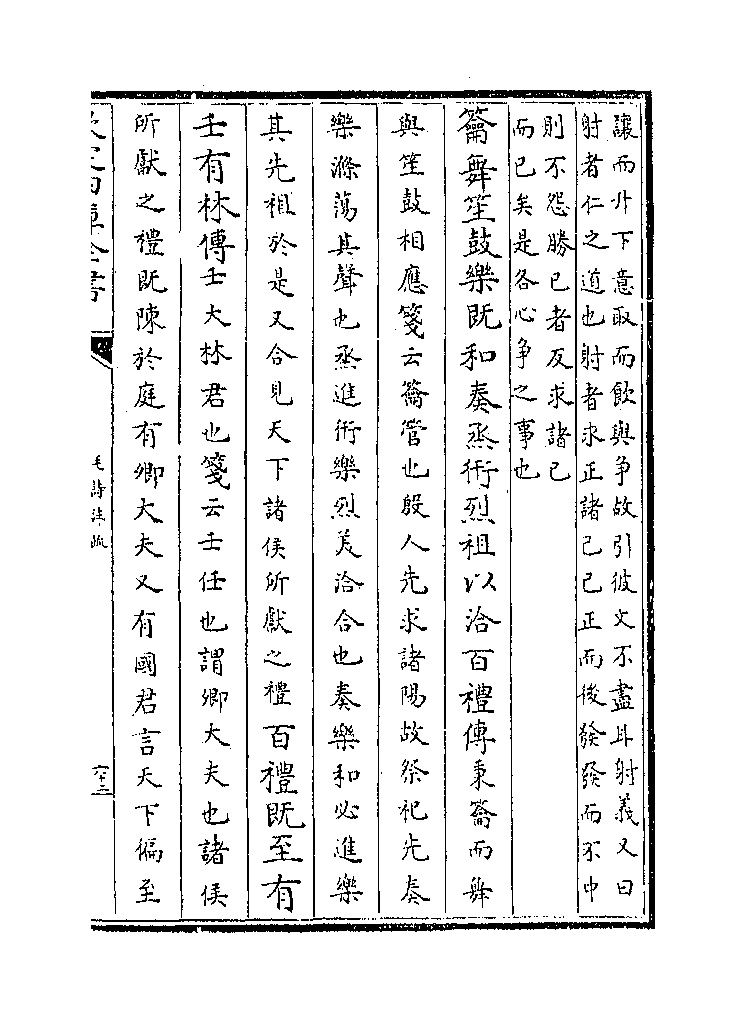 讓而升下意取而飲與争故引彼文不盡耳射義又曰
射者仁之道也射者求正諸己己正而後發發而不中
則不怨勝己者反求諸己
而已矣是各心争之事也
籥舞笙鼓樂既和奏烝衎烈祖以洽百禮傳秉籥而舞
與笙鼓相應箋云籥管也殷人先求諸陽故祭祀先奏
樂滌蕩其聲也烝進衎樂烈美洽合也奏樂和必進樂
其先祖於是又合見天下諸侯所獻之禮百禮既至有
壬有林傳壬大林君也箋云壬任也謂卿大夫也諸侯
所獻之禮既陳於庭有卿大夫又有國君言天下徧至
欽定四庫全書
毛詩注疏
六十三